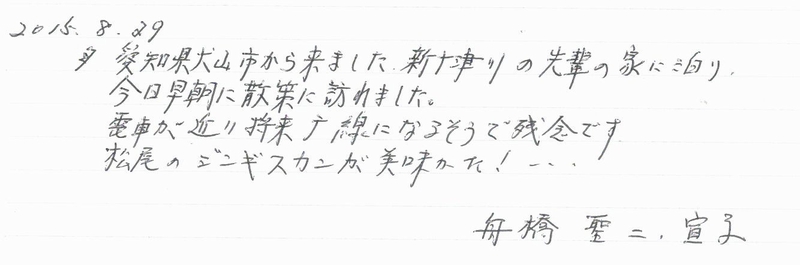 2015.8.29
愛知県犬山市から来ました.新十津川の先輩の家に泊り.
今日早朝に散策に訪れました。
電車が近い将来广線になるそうで残念です
松尾のジンギスカンが美味かた!...
舟橋 聖二.宣子